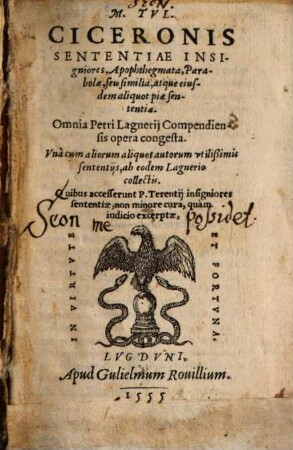 Seon.
M. TVL.
CICERONIS
SENTENTIAE INSI-
gniores, Apophthegmata, Para-
bolæ, seu similia, atque eius-
dem aliquot piæ sen-
tentiæ.
Omnia Petri Lagnerij Compendien-
sis opera congesta.
Vnà cum aliorum aliquot autorum vtilißimis
sententijs, ab eodem Lagnerio
collectis.
Quibus accesserunt P. Terentij insigniores
sententiæ, non minore cura, quàm
iudicio excerptæ,
Seon me possidet.
IN VIRTVTE
ET FORTVNA.
LVGDVNI,
Apud Gulielmum Rouillium.
1555